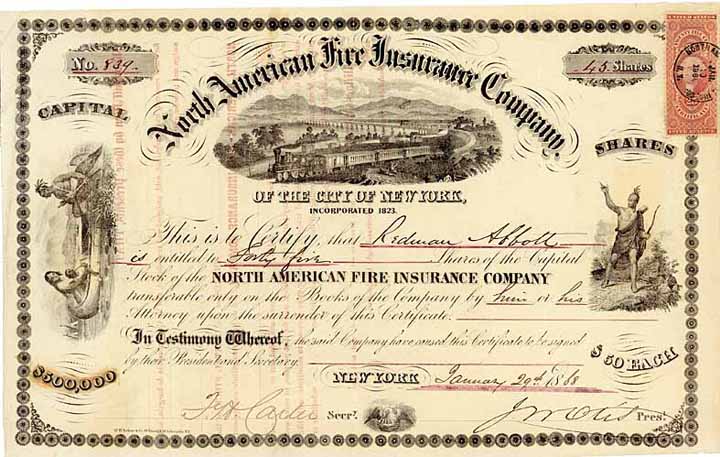 No. 839.
45 Shares
North American Fire Insurance Company
CAPITAL
SHARES
OF THE CITY OF NEW YORK,
INCORPORATED 1823.
This is to Certify, that Redman Abbott
is entitled to Forty five Shares of the Capital
Stock of the NORTH AMERICAN FIRE INSURANCE COMPANY
transferable only on the Books of the Company by him or his
Attorney upon the surrender of this Certificate.
In Testimony Whereof, the said Company have caused this Certificate to be signed
by their President and Secretary.
$500,000
$50 EACH
NEW YORK January 29th 1868
Secy.
Pres.